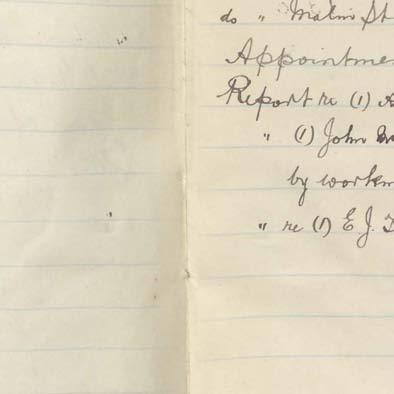 do " Main St
Appointme
Report re (1) A
" (1) John
by workm
" re (1) E J.